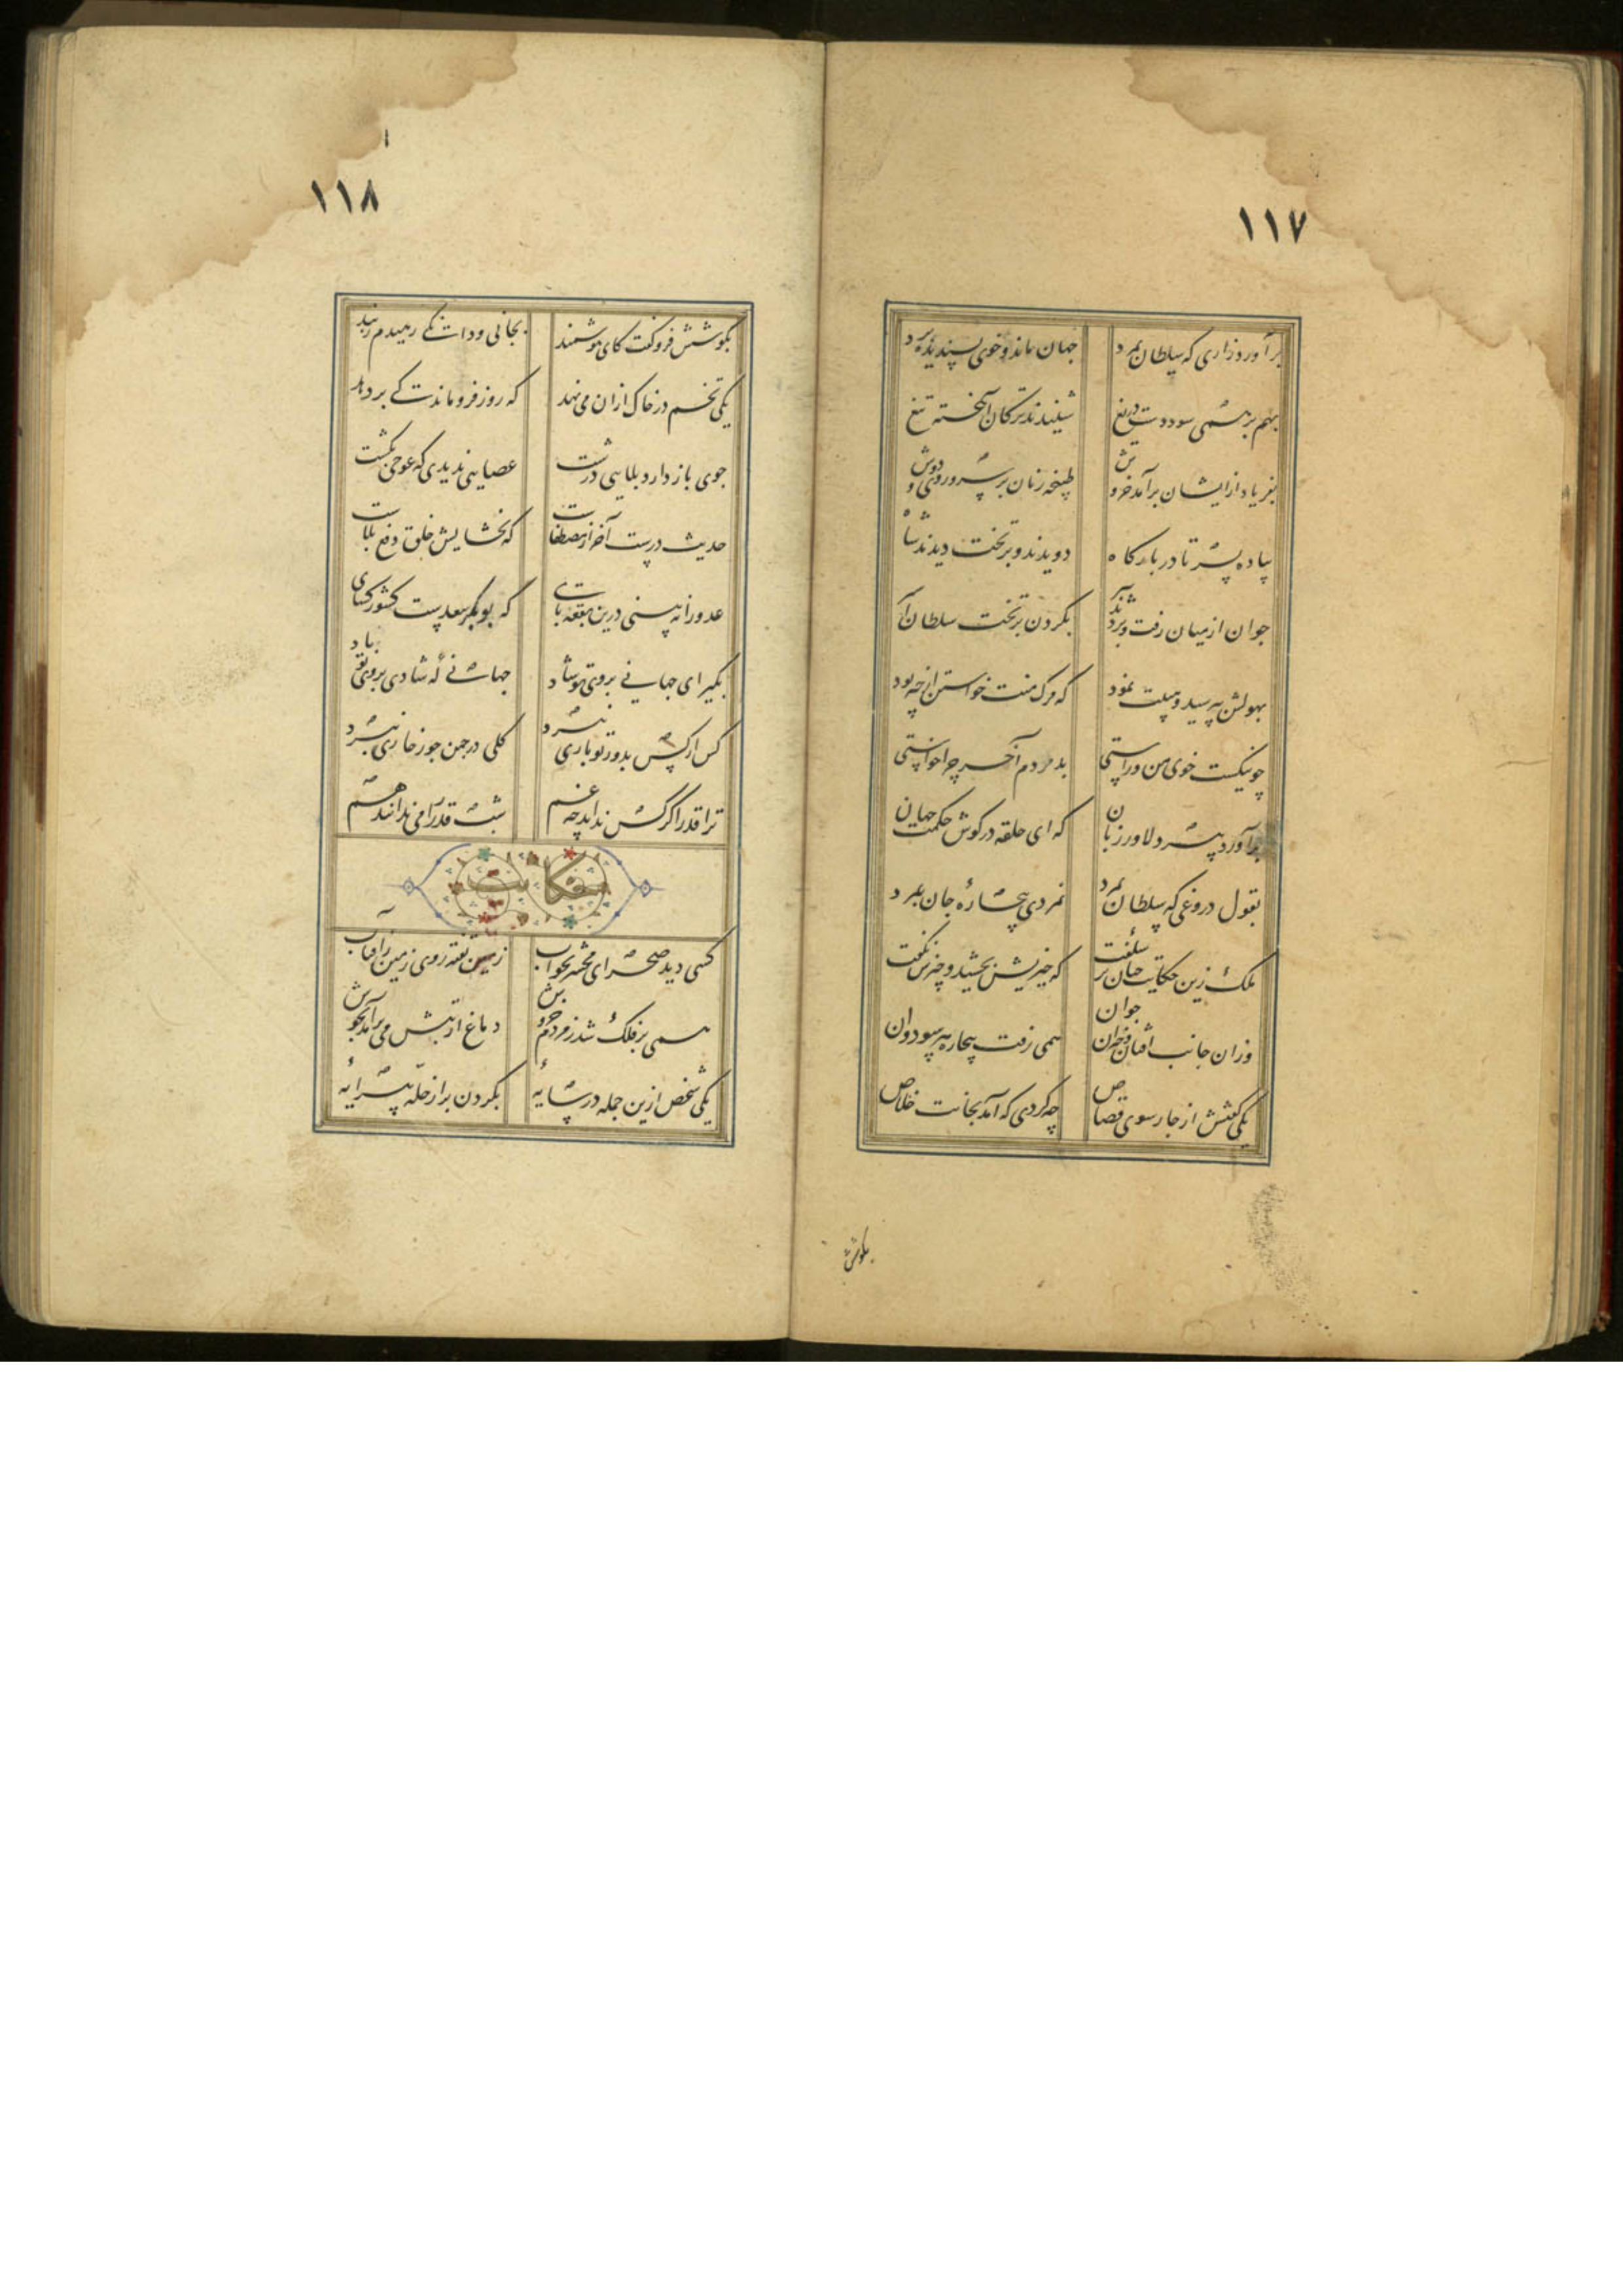 ۱۱۷
برآورد زاری که سلطان بمرد جهان ماند و خوی پسندیده برد
بهم بر همی سود دست دریغ شنیدند ترکان آهخته تیغ
بفریاد ازیشان برآمد خروش طپنچه زنان بر سر و روی و دوش
پیاده بسر تا در بارگاه دویدند و بر تخت دیدند شاه
جوان از میان رفت و بردند بگردن بر تخت سلطان
بهولش بپرسید و هیبت نمود که مرگ منت خواستن از چه بود
چو نیکست خوی من و راستی بد مردم آخر چرا خواستی
برآورد پیر دلاور زبان که ای حلقه در گوش حکمت جهان
بقول دروغی که سلطان بمرد نمردی و بیچاره جان ببرد
ملک زین حکایت چنان بر که چیزش ببخشید و چیزی نگفت
وزان جانب افتان و خیزان جوان همی رفت بیچاره هر سو دوان
یکی گفتش از چار سوی قصاص چه کردی که آمد بجانت خلاص
بگوشش
۱۱۸
بگوشش فرو گفت کای هوشمند بجانی و دانگی رهیدم ز بند
یکی تخم در خاک ازان می نهد که روز فرو ماندگی بر دهد
جوی باز دارد بلایی درشت عصایی ندیدی که عوجی بکشت
حدیث درست آخر از مصطفاست که بخشایش خلق دفع بلاست
عدو را نه بینی درین بقعه پای که بوبکر سعدست کشور گشای
بگیر ای جهانی بروی تو شاد جهانی که شادی بروی تو باد
کس از کس بدور تو باری نبرد گلی در چمن جور خاری نبرد
ترا قدر اگر کس نداند چه غم شب قدر را می ندانند هم
حکایت
کسی دید صحرای محشر بخواب زمین تفته روی زمین ز آفتاب
همی بر فلک شد ز مردم خروش دماغ از تبش می برآمد بجوش
یکی شخص ازین جمله در سایهٔ بگردن بر از حله پیرایهٔ